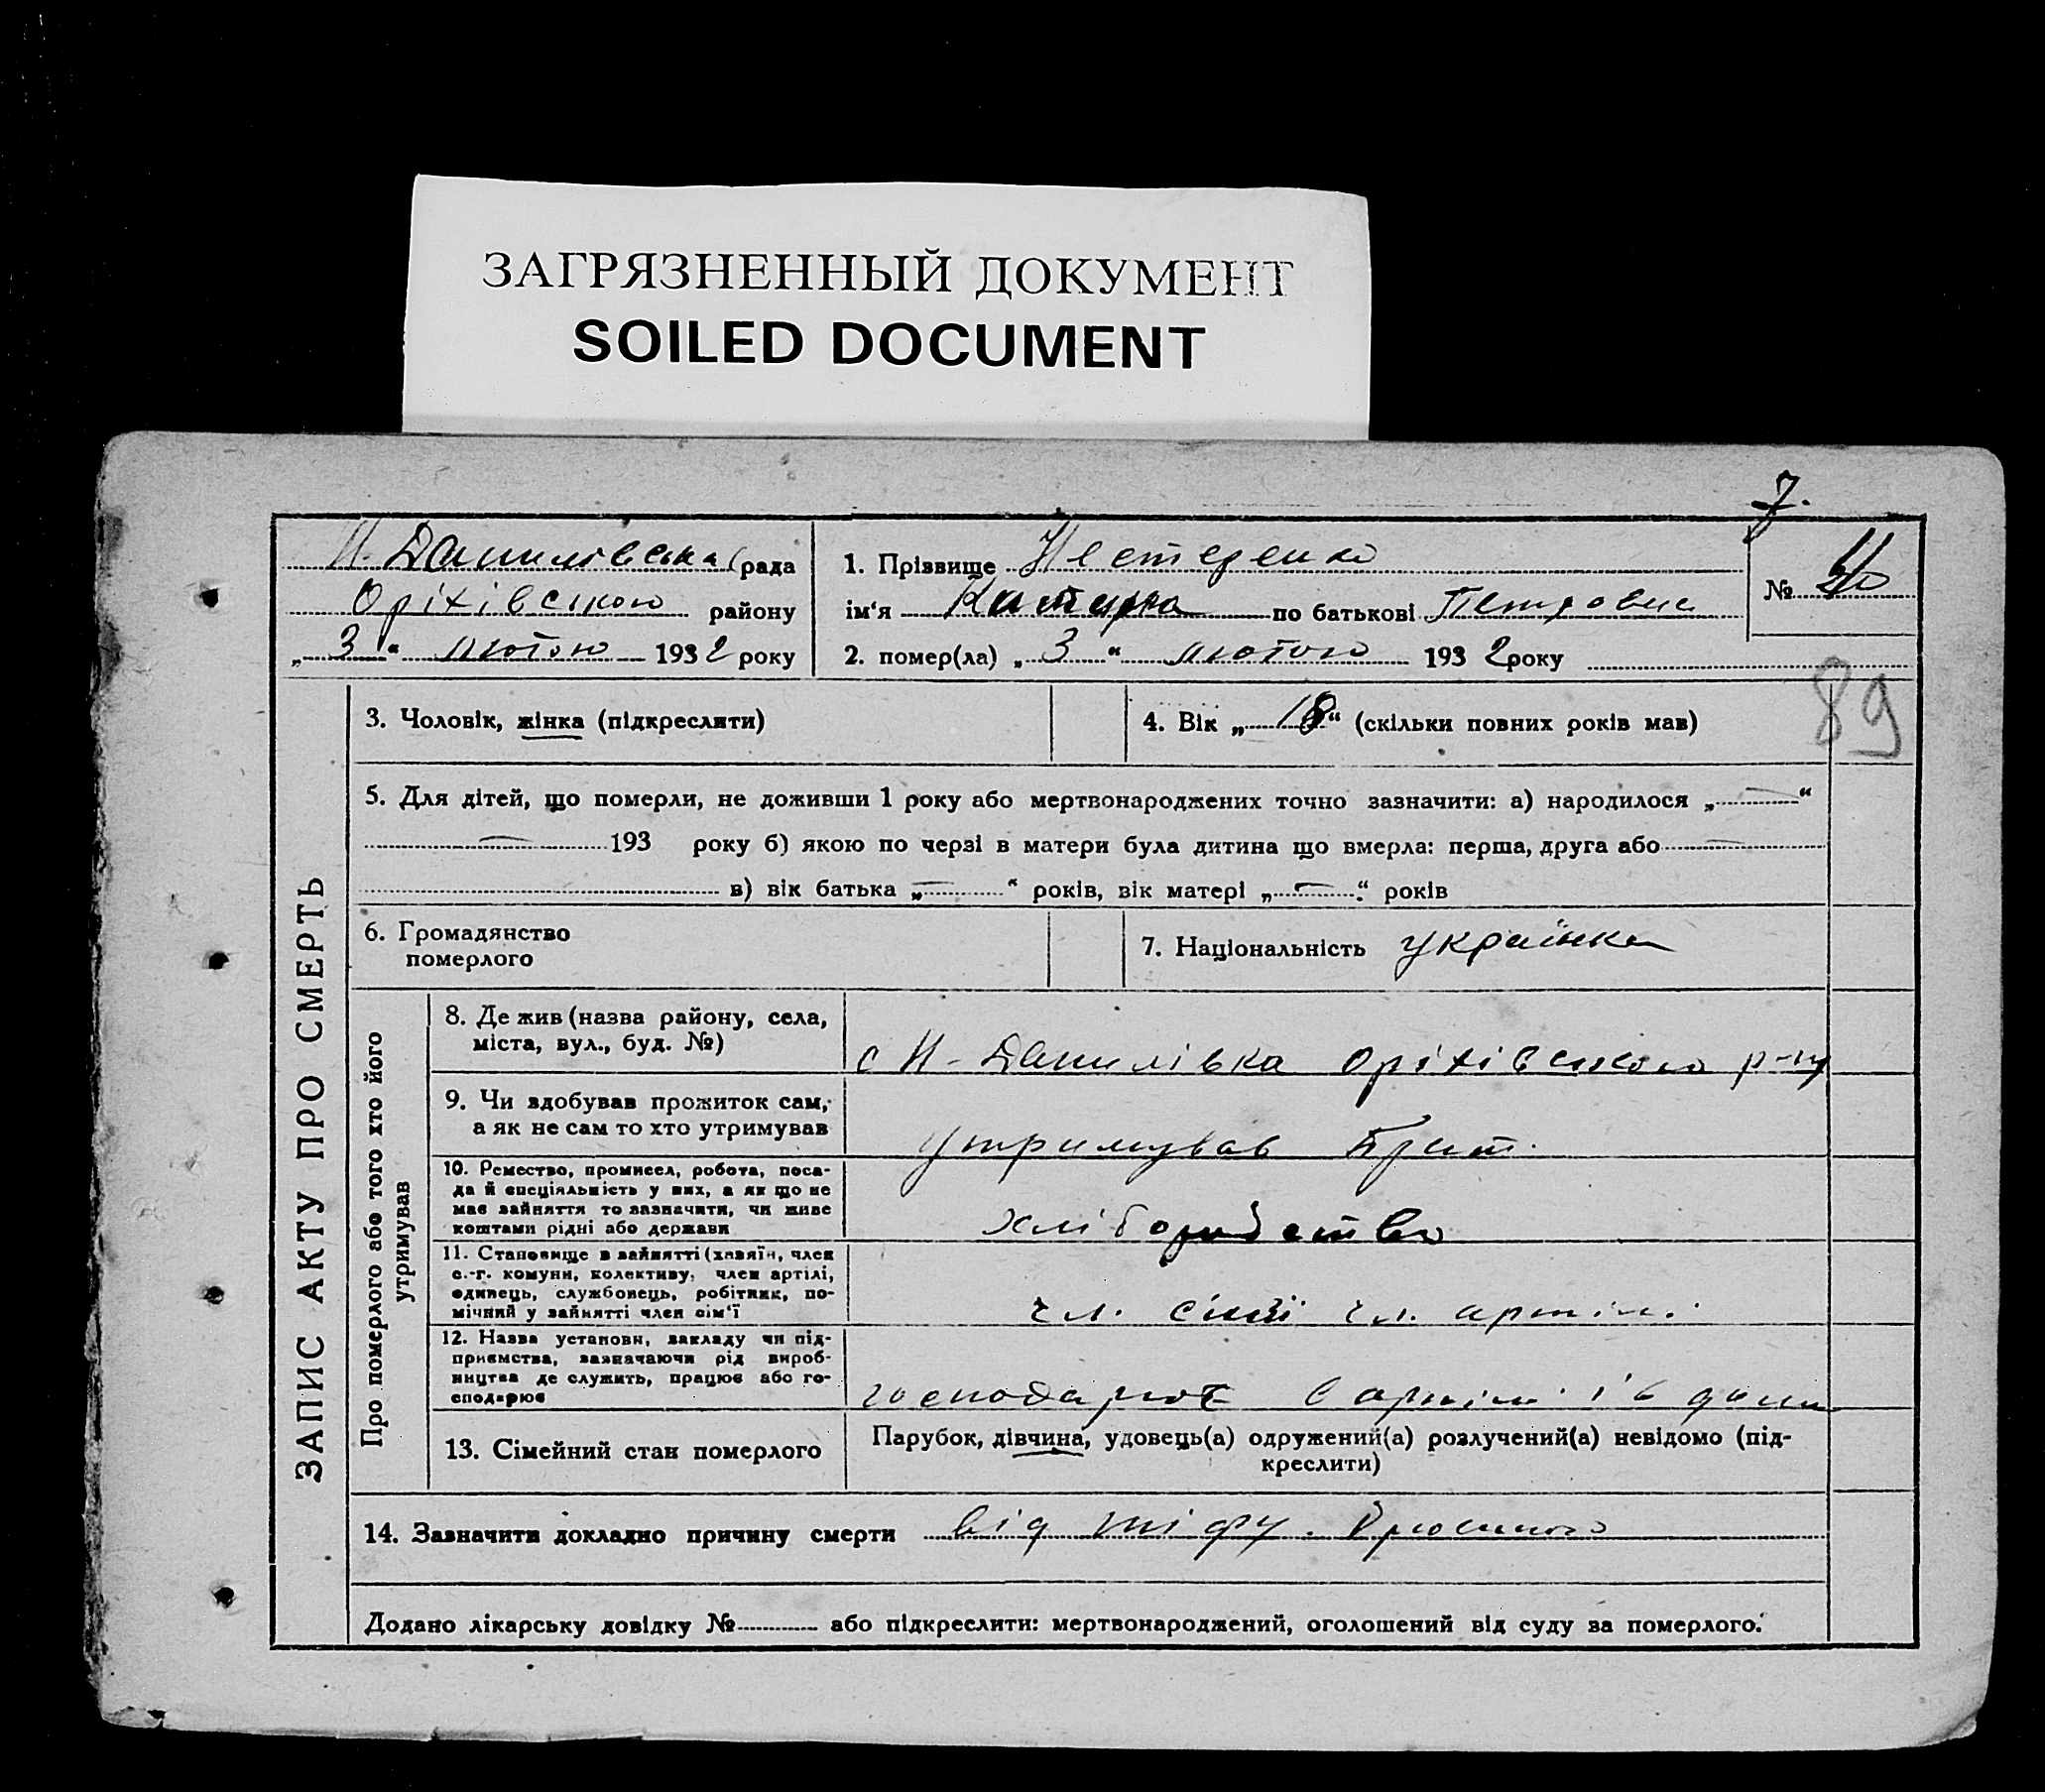 ЗАГРЯЗНЕННЫЙ ДОКУМЕНТ
SOILED DOCUMENT
7.
Н. Данилівська рада
Оріхівського району
„3“ лютого 1932 року
1. Прізвище Нестеренко
ім‘я по батькові Петровна
2. помер(ла) „3“ лютого 1932 року
№
89
ЗАПИС АКТУ ПРО СМЕРТЬ
3. Чоловік, жінка (підкреслити)
4. Вік „18“ (скільки повних років мав)
5. Для дітей, що померли, не доживши 1 року або мертвонароджених точно зазначити: а) народилося „—“
— 193 року б) якою по черзі в матери була дитина що вмерла: перша, друга або —
в) вік батька „—“ років, вік матері „—“ років
6. Громадянство
померлого
7. Національність українка
Про померлого або того хто його
утримував
8. Де жив (назва району, села,
міста, вул., буд. №)
с Н-Данилівка Оріхівського р-ну
9. Чи здобував прожиток сам,
а як не сам то хто утримував
утримував Брат.
10. Ремество, промисел, робота, поса-
да й спеціяльність у них, а як що не
має зайняття то зазначити, чи живе
коштами рідні або держави
хліборобство
11. Становище в зайнятті (хазяїн, член
с.-г. комуни, колективу, член артілі,
одинець, службовець, робітник, по-
мічний у зайнятті член сім‘ї
чл. сімї чл. артілі
12. Назва установи, закладу чи під-
приємства, зазначаючи рід вироб-
ництва де служить, працює або го-
сподарює
господарює в артілі і в дома
13. Сімейний стан померлого
Парубок, дівчина, удовець(а) одружений(а) розлучений(а) невідомо (під-
креслити)
14. Зазначити докладно причину смерти від тіфу. Брюшного
Додано лікарську довідку № або підкреслити: мертвонароджений, оголошений від суду за померлого.